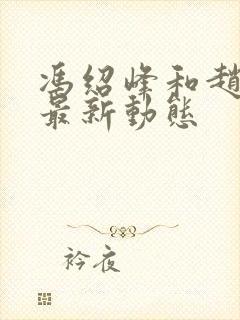 馮紹峰和趙
最新動態
衿夜